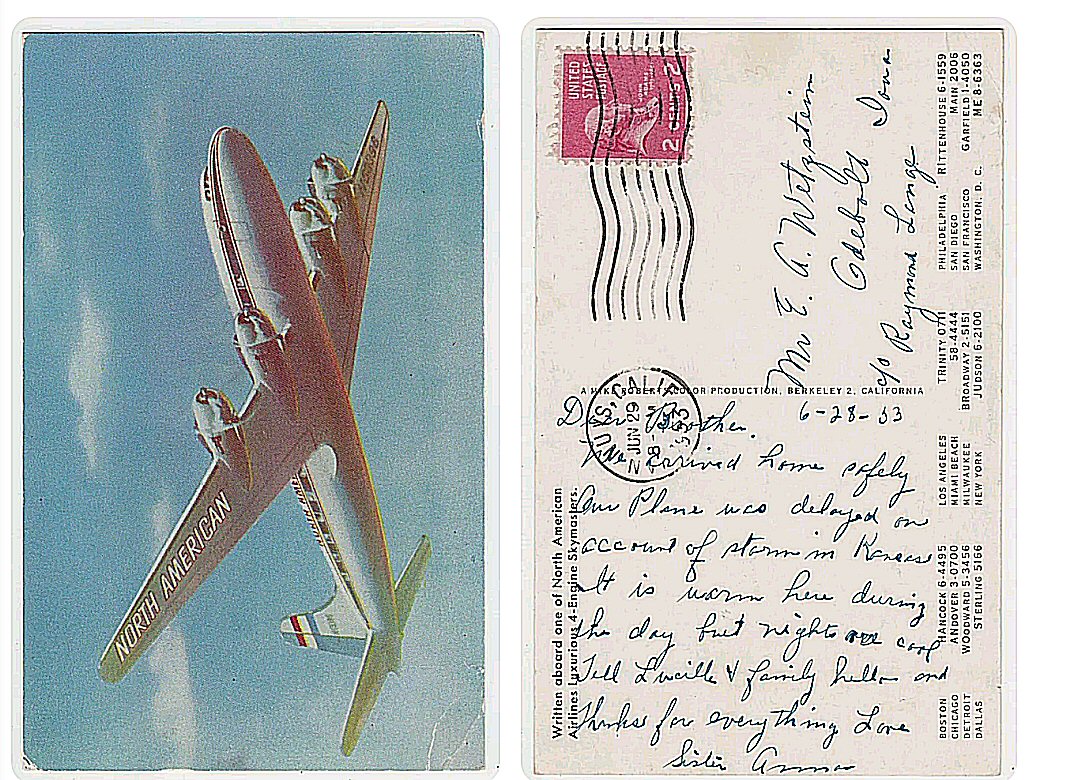 NORTH AMERICAN
UNITED
STATES
POSTAGE
2 CENTS 2
Mr E. A. Wetzstein
Odebolt Iowa
c/o Raymond Lange
A MIKE ROBERTS COLOR PRODUCTION, BERKELEY 2, CALIFORNIA
CALIF
JUN 29
1953
6-28-53
Dear Brother,
We arrived home safely
Our Plane was delayed on
account of storm in Kansas
It is warm here during
the day but nights are cool
Tell Lucille & family hello and
thanks for everything Love
Sister Anna
Written aboard one of North American
Airlines Luxurious 4-Engine Skymasters.
BOSTON HANCOCK 6-4495 LOS ANGELES TRINITY 0711 PHILADELPHIA RITTENHOUSE 6-1559
CHICAGO ANDOVER 3-0700 MIAMI BEACH 58-4444 SAN DIEGO MAIN 2006
DETROIT WOODWARD 5-3456 MILWAUKEE BROADWAY 2-5151 SAN FRANCISCO GARFIELD 1-4050
DALLAS STERLING 5166 NEW YORK JUDSON 6-2100 WASHINGTON, D. C. ME 8-6363